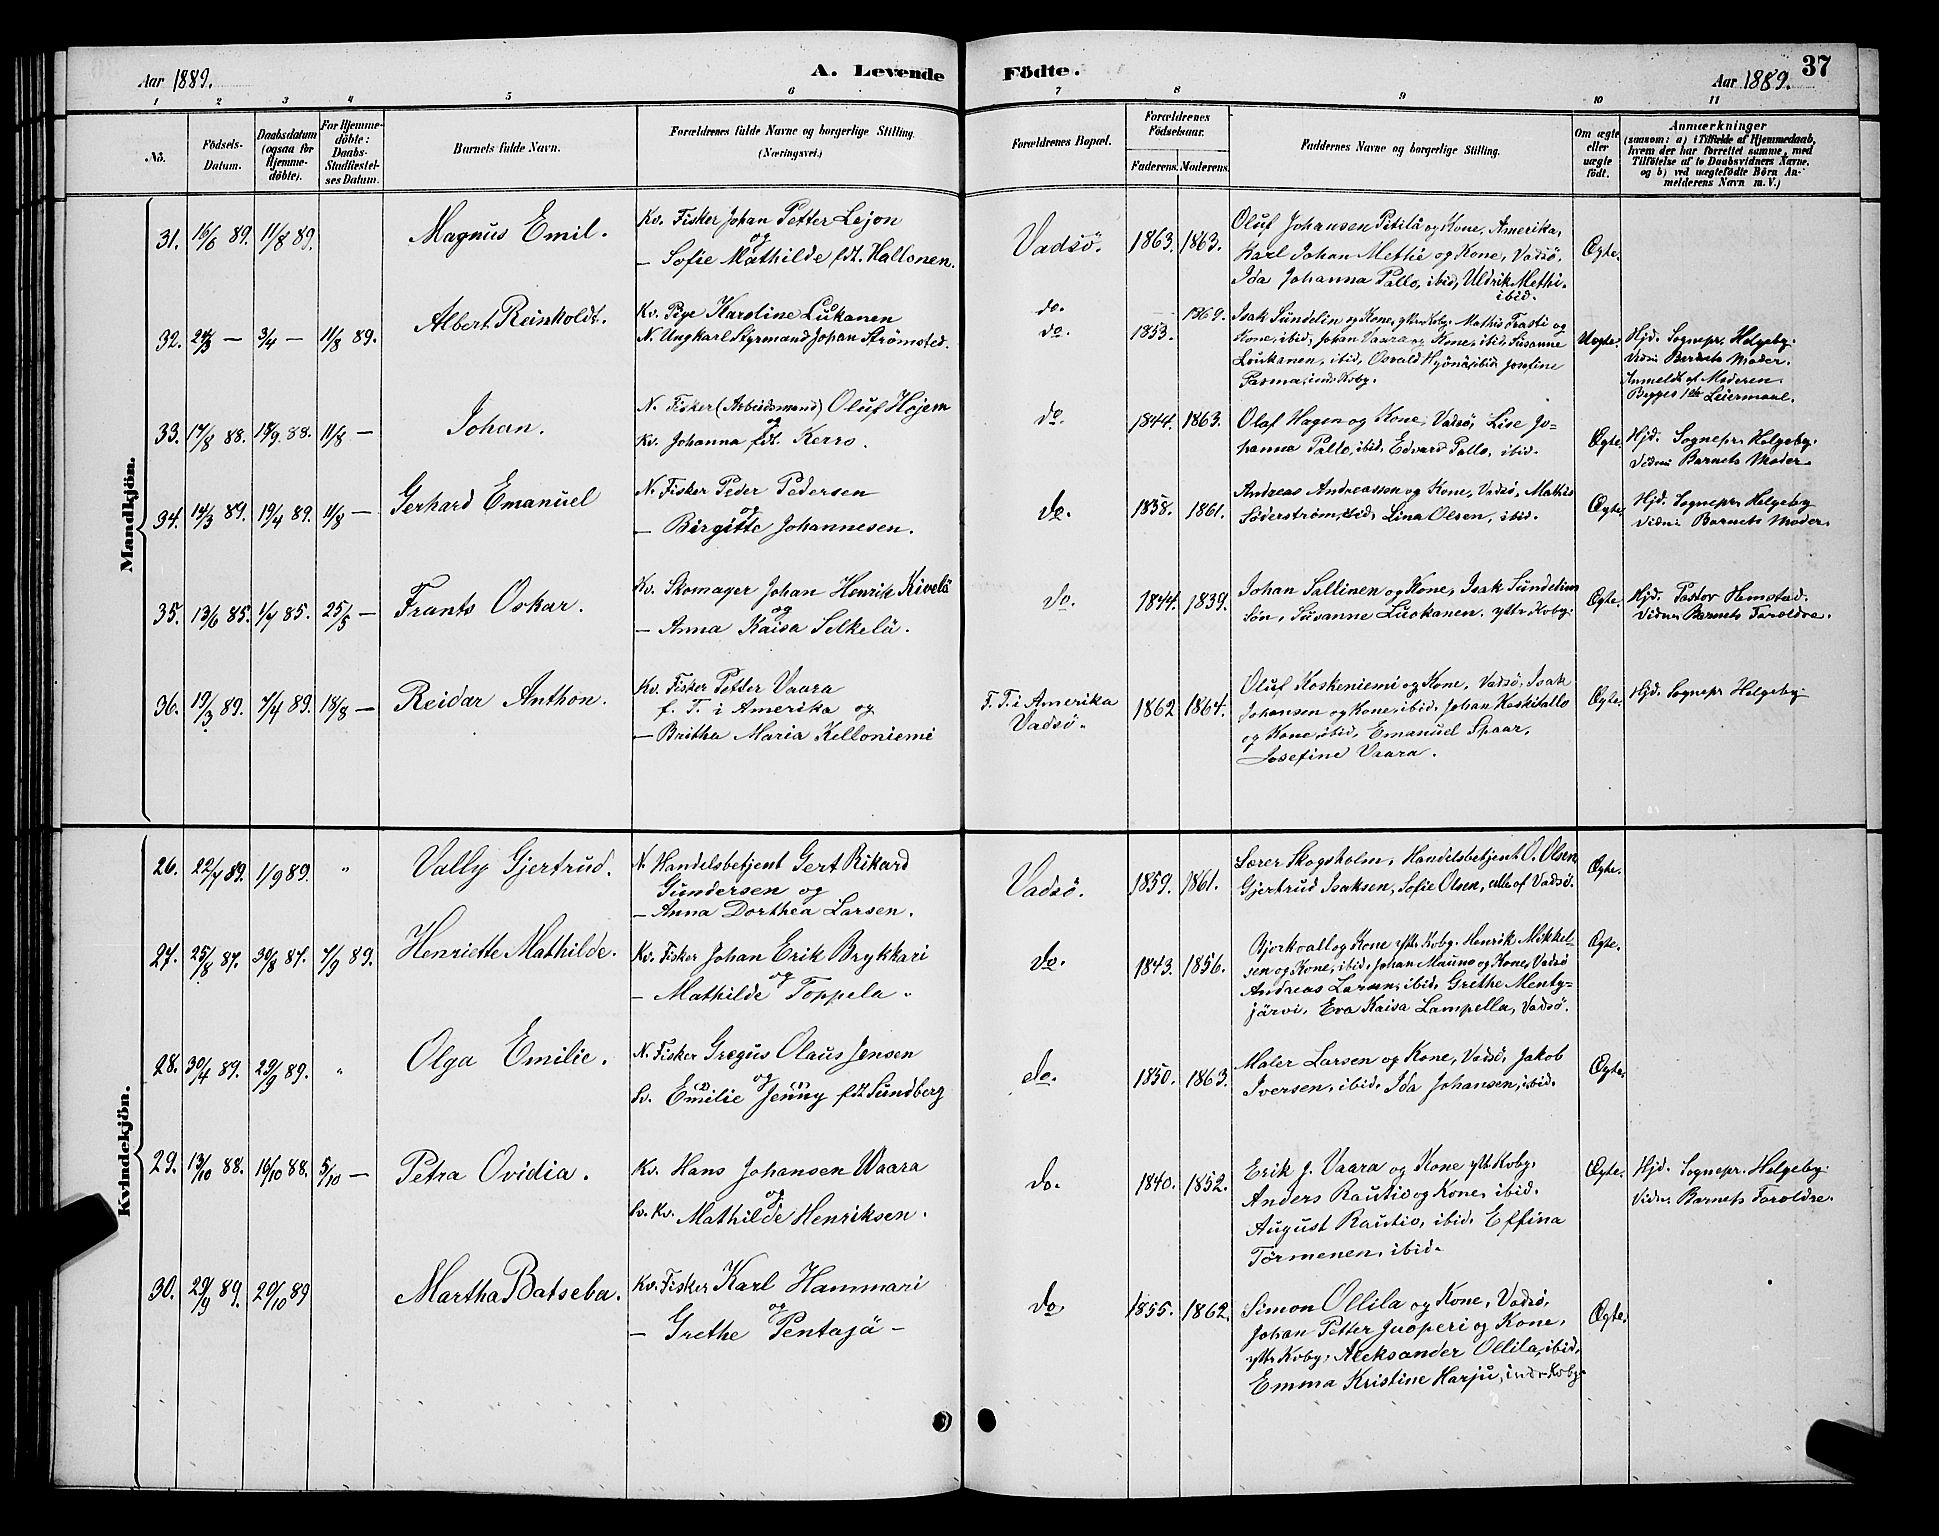 Aar 1889.
A. Levende Födte.
Aar 1889.
37
1 2 3 4 5 6 7 8 9 10 11
No.
Födsels-Datum.
Daabsdatum (ogsaa for Hjemme-döbte).
For Hjemme-döbte: Daabs-Stadfæstel-ses Datum.
Barnets fulde Navn.
Forældrenes fulde Navne og borgerlige Stilling.
(Næringsvei.)
Forældrenes Bopæl.
Forældrenes Födselsaar.
Faderens. Moderens.
Faddernes Navne og borgerlige Stilling.
Om ægte eller uægte födt.
Anmærkninger
(saasom: a) i Tilfælde af Hjemmedaab, hvem der har forrettet samme, med Tilföielse af to Daabsvidners Navne, og b) ved uægtefödte Börn An-melderens Navn m. V.)
Mandkjön.
31. 16/6 89. 11/8 89. Magnus Emil.
Kv. Fisker Johan Petter Lejon
og
— Sofie Mathilde fdt. Hallonen.
Vadsö. 1863. 1863.
Oluf Johansen Pitilä og Kone, Amerika,
Karl Johan Methi og Kone, Vadsö,
Ida Johanna Pallo, ibid, Uldrik Methi
ibid.
Ægte.
32. 24/3 — 3/4 — 11/8 89. Albert Reinholdt.
Kv. Pige Karoline Lukanen
N. Ungkarl Styrmand Johan Strömsted.
do.
do. 1853. 1869.
Isak Sundelin og Kone, ytr. Kvby. Mathis Frasti og
Kone, ibid, Johan Vaara og Kone, ibid, Susanne
Loukanen, ibid, Osvald Hyönä, ibid Josefine
Pasma, indr. Kvby.
Uægte.
Hjd. Sognepr. Helgeby.
Vidn: Barnets Moder.
Anmeldt af Moderen.
Begges 1ste Leiermaal.
33. 17/8 88. 18/9 88. 11/8 — Johan.
N. Fisker (Arbeidsmand) Oluf Højem
og
Kv. Johanna fdt. Kerro.
do 1844. 1863.
Olaf Hagen og Kone, Vadsö, Lise Jo-
hanna Pallo, ibid, Edvard Pallo, ibid.
Ægte.
Hjd. Sognepr. Helgeby.
Vidn: Barnets Moder.
34. 14/3 89. 19/4 89. 11/8 — Gerhard Emanuel
N. Fisker Peder Pedersen
og
— Birgitte Johannesen.
do. 1838. 1861.
Andreas Andreassen og Kone, Vadsö, Mathis
Söderström, ibid, Lina Olsen, ibid.
Ægte.
Hjd. Sognepr. Helgeby
Vidn: Barnets Moder.
35. 13/6 85. 1/7 85. 25/5 — Frants Oskar.
Kv. Skomager Johan Henrik Kivelä
og
— Anna Kaisa Selkelä.
do. 1844. 1839.
Johan Sallinen og Kone, Isak Sundelins
Sön, Susanne Luokanen. ytr. Kvby.
Ægte.
Hjd. Pastor Hemstad.
Vidn. Barnets Forældre.
36. 19/3 89. 7/4 89. 18/8 — Reidar Anthon.
Kv. Fisker Petter Vaara
f. T. i Amerika og
— Britha Maria Kelloniemi
F. T. i Amerika
Vadsö. 1862 1864.
Oluf Koskeniemi og Kone, Vadsö, Isak
Johansen og Kone, ibid, Johan Koskitallo
og Kone, ibid, Emanuel Spaar,
Josefine Vaara.
Ægte.
Hjd. Sognepr Helgeby
Kvindekjön.
26. 22/7 89. 1/9 89. " Vally Gjertrud.
N. Handelsbetjent Gert Rikard
Gundersen og
— Anna Dorthea Larsen.
Vadsö. 1859. 1861.
Lærer Skogsholm, Handelsbetjent O. Olsen
Gjertrud Isaksen, Sofie Olsen, alle af Vadsö.
Ægte.
27. 25/8 87. 30/8 87. 7/9 89. Henriette Mathilde.
Kv. Fisker Johan Erik Brykkari
og
— Mathilde Toppela.
do. 1843. 1856.
Bjorkvall og Kone ytr. Kvby. Henrik Mikkel-
sen og Kone, ibid, Johan Mauno og Kone, Vadsö
Andreas Larsen, ibid, Grethe Menty-
järvi, Eva Kaisa Lampella, Vadsö.
Ægte.
28. 30/4 89. 29/9 89. " Olga Emilie.
N. Fisker Gregus Olaus Jensen
og
Sv. Emilie Jenny fdt. Sundberg
do. 1850. 1863.
Maler Larsen og Kone, Vadsö, Jakob
Iversen, ibid, Ida Johansen, ibid.
Ægte.
29. 13/10 88. 16/10 88. 5/10 — Petra Ovidia.
Kv. Hans Johansen Waara
og
Sv. Kv. Mathilde Henriksen.
do. 1840. 1852.
Erik J. Vaara og Kone ytr. Kvby.
Anders Rautio og Kone, ibid.
August Rautio, ibid. Effina
Törmenen, ibid.
Ægte.
Hjd. Sognepr. Helgeby.
Vidn. Barnets Forældre.
30. 29/9 89. 20/10 89 Martha Batseba.
Kv. Fisker Karl Hammari
og
— Grethe Pentajä —
do 1855. 1862.
Simon Ollila og Kone, Vadsö,
Johan Petter Juoperi og Kone,
ytr. Kvby, Aleksander Ollila, ibid,
Emma Kristine Harju, indr. Kvby.
Ægte.